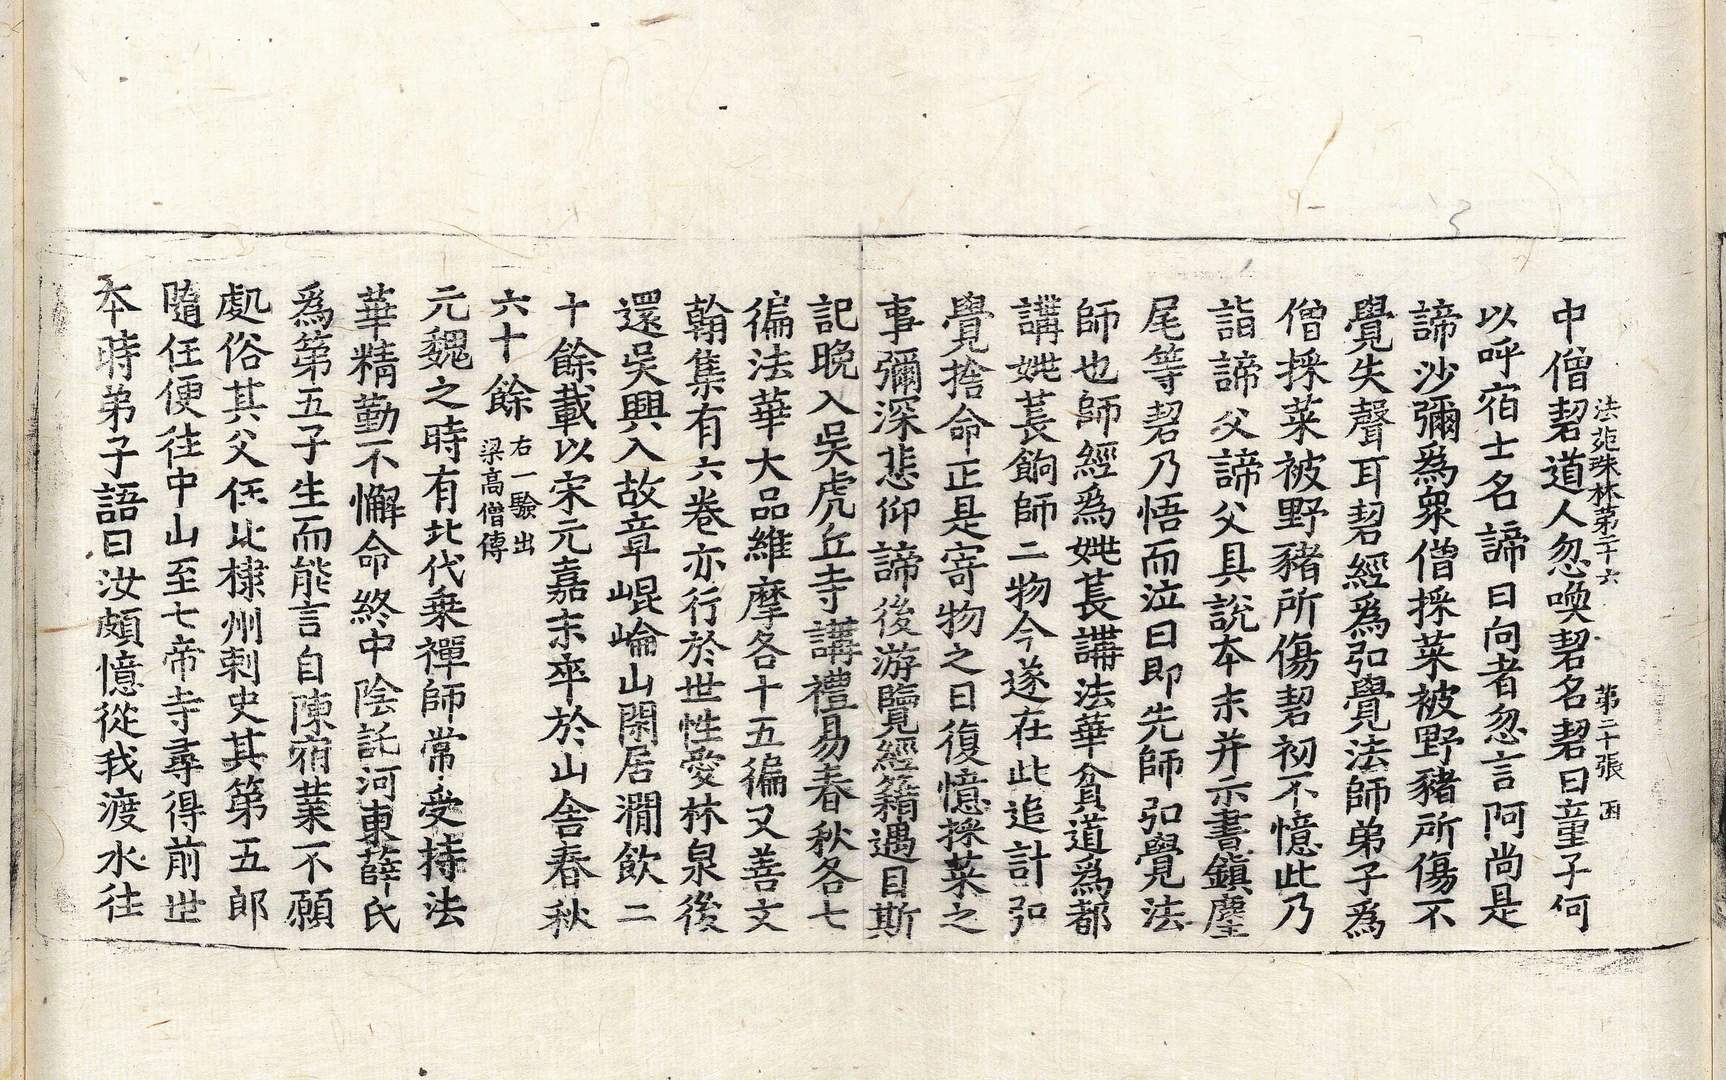 法苑珠林第二十六　第二十張　西
中僧䂮道人忽喚䂮名䂮曰童子何
以呼宿士名諦曰向者忽言阿尚是
諦沙彌爲衆僧採菜被野豬所傷不
覺失聲耳䂮經爲弘覺法師弟子爲
僧採菜被野豬所傷䂮初不憶此乃
詣諦父諦父具說本末并示書鎮麈
尾等䂮乃悟而泣曰即先師弘覺法
師也師經爲姚萇講法華貧道爲都
講姚萇餉師二物今遂在此追計弘
覺捨命正是寄物之日復憶採菜之
事彌深悲仰諦後游覽經籍遇目斯
記晚入吳虎丘寺講禮易春秋各七
徧法華大品維摩各十五徧又善文
翰集有六卷亦行於世性愛林泉後
還吳興入故章崐崘山閑居澗飲二
十餘載以宋元嘉末卒於山舍春秋
六十餘右一驗出梁高僧傳
元魏之時有北代乗禪師常受持法
華精勤不懈命終中陰託河東薛氏
爲第五子生而能言自陳宿業不願
處俗其父任北棣州刺史其第五郎
隨任便往中山至七帝寺尋得前世
本時弟子語曰汝頗憶從我渡水往